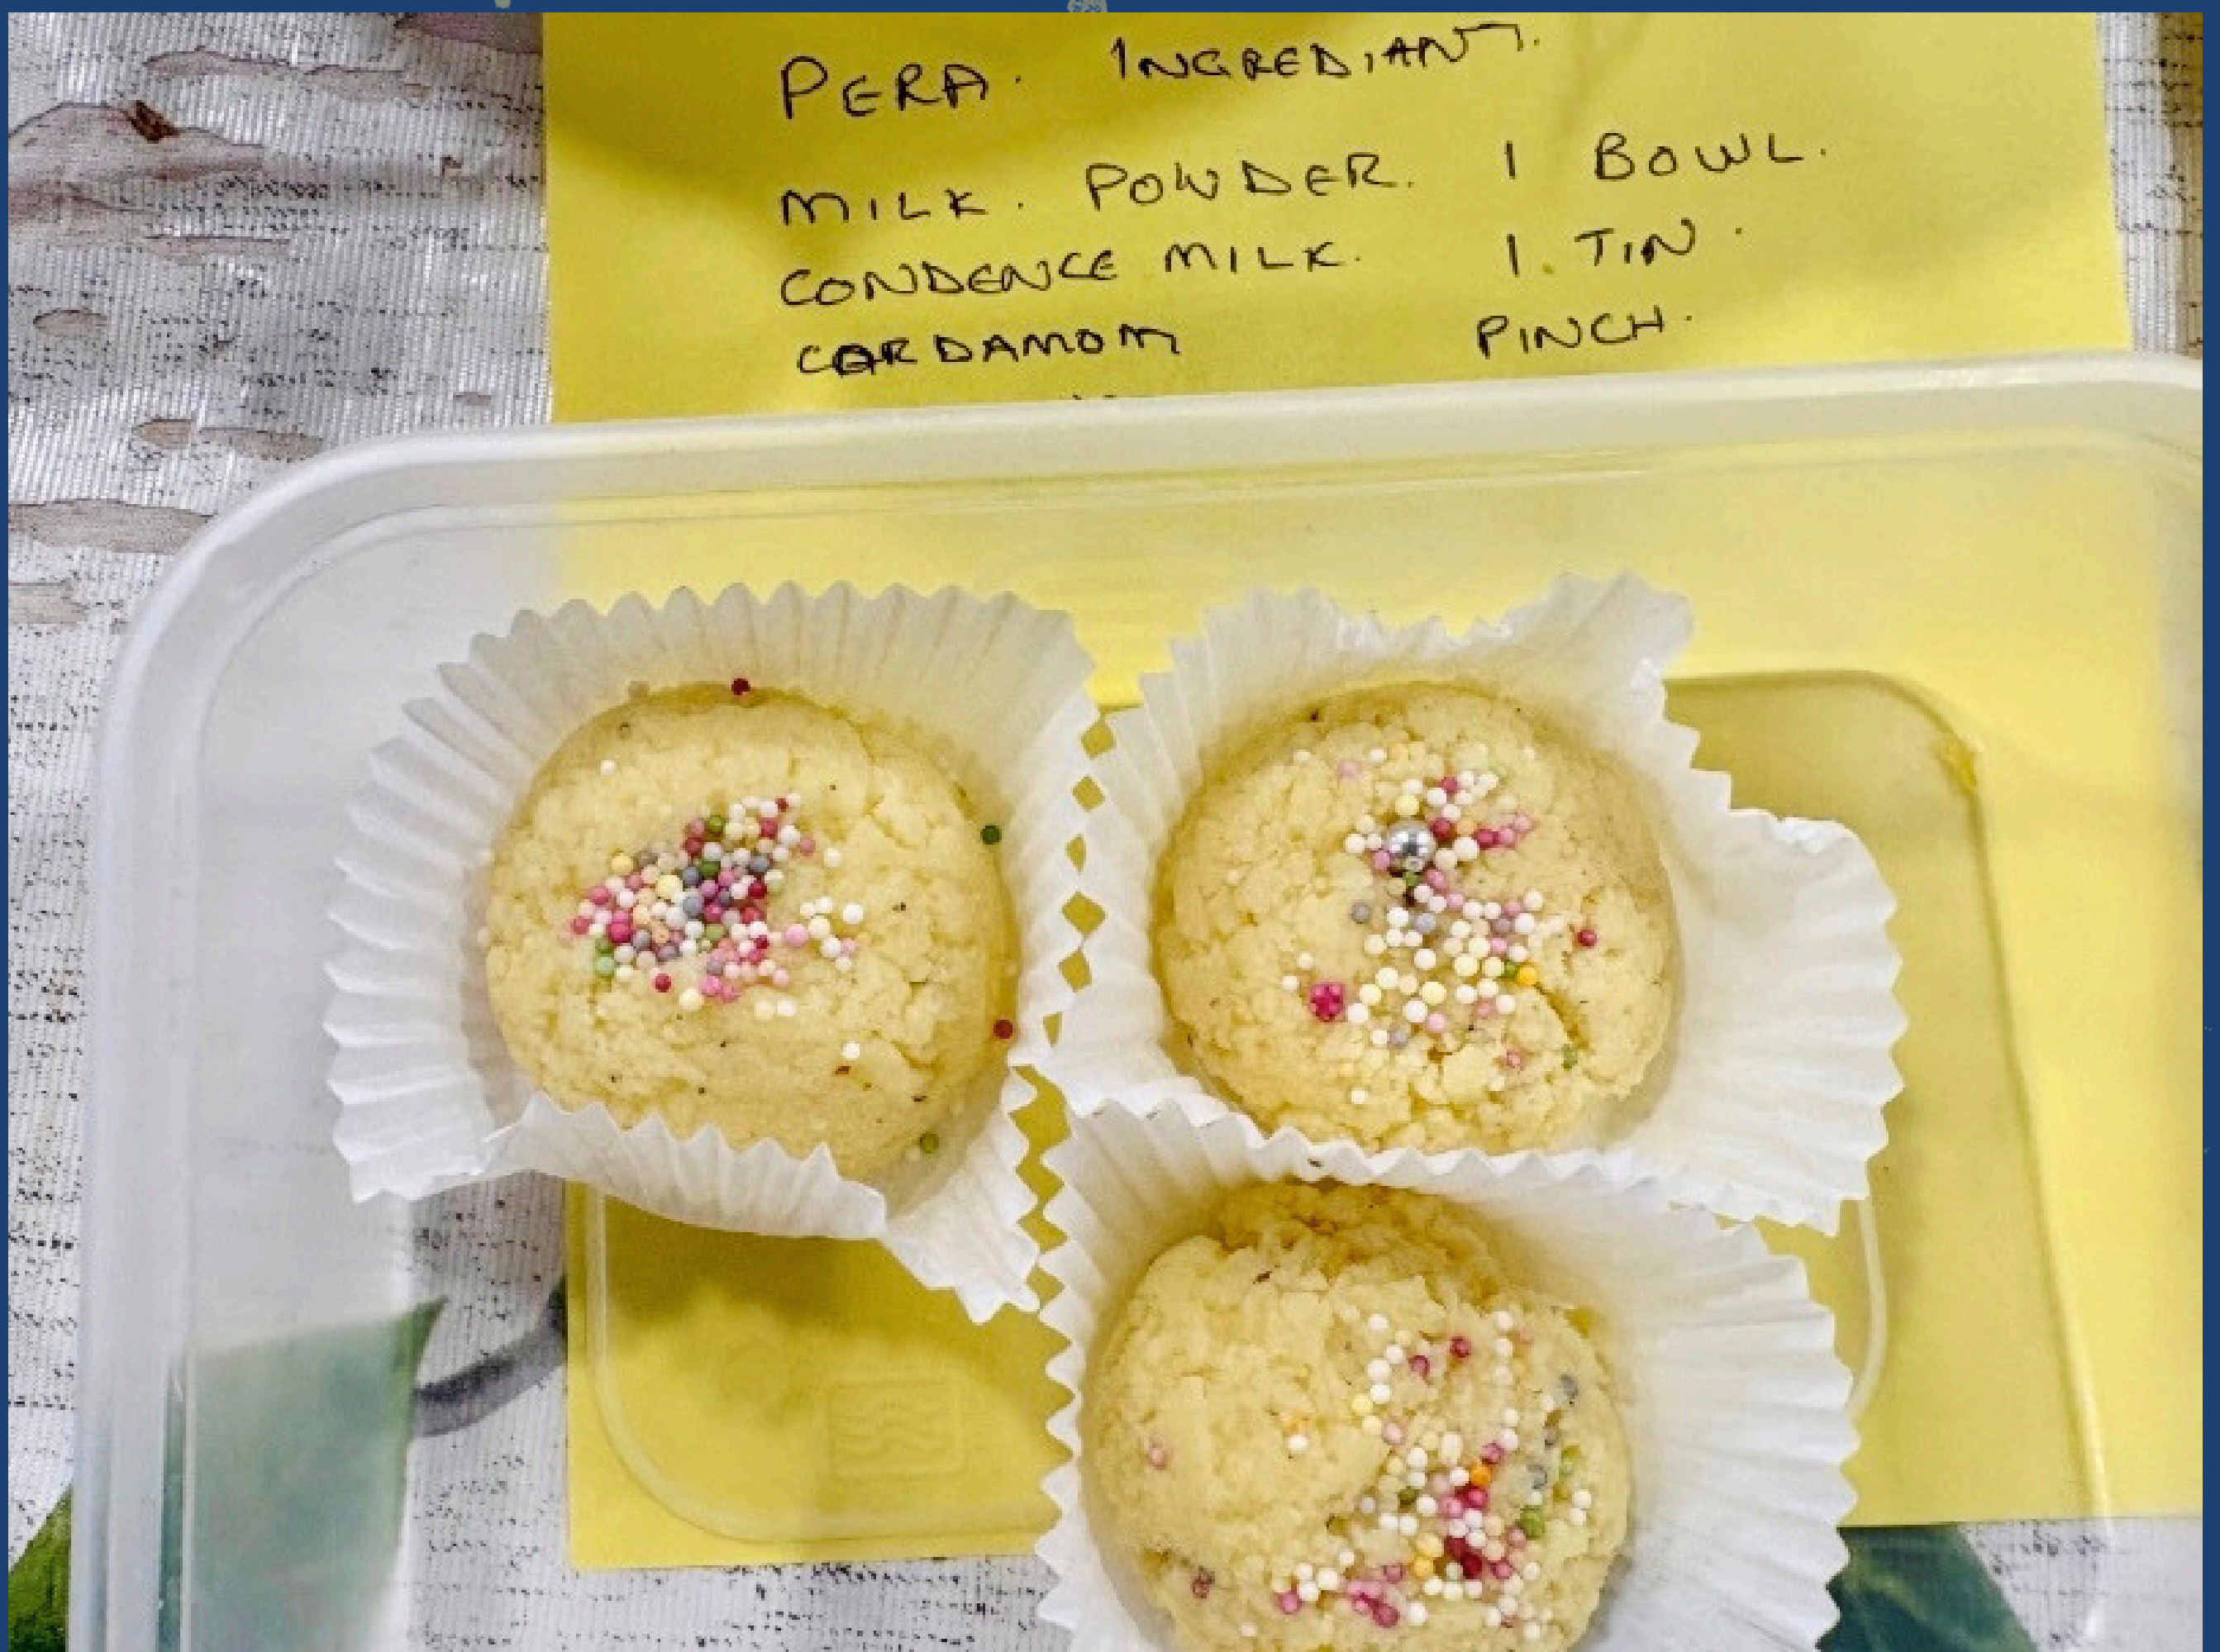 PERA. INGREDIANT.
MILK. POWDER. 1 BOWL.
CONDENCE MILK. 1. TIN.
CARDAMOM PINCH.